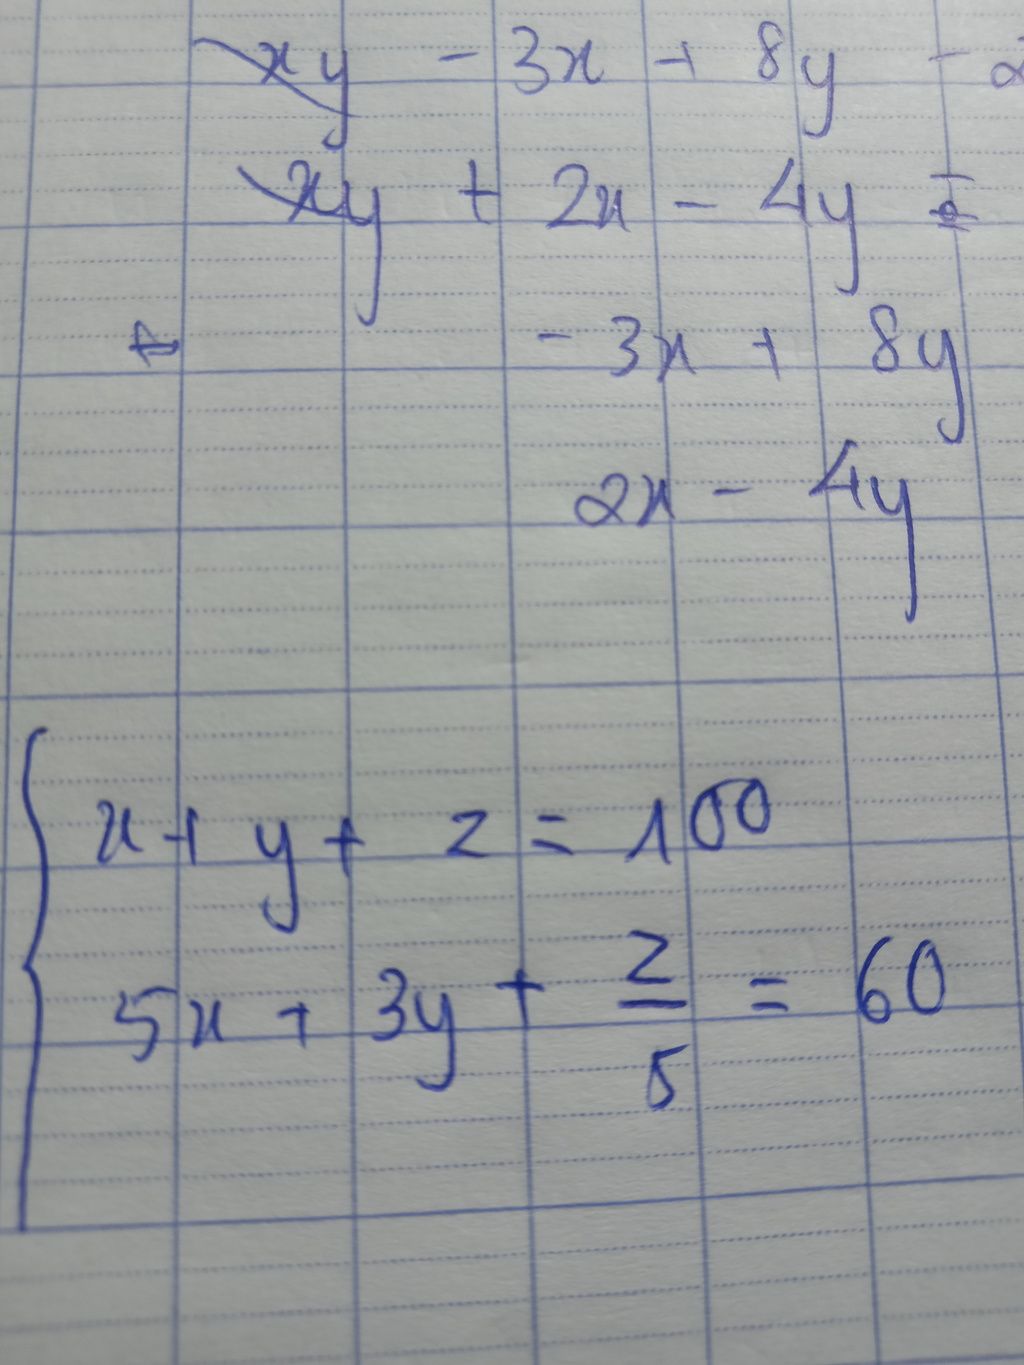 xy - 3x + 8y -
xy + 2x - 4y
- 3x + 8y
2x - 4y
x + y + z = 100
5x + 3y + z/5 = 60